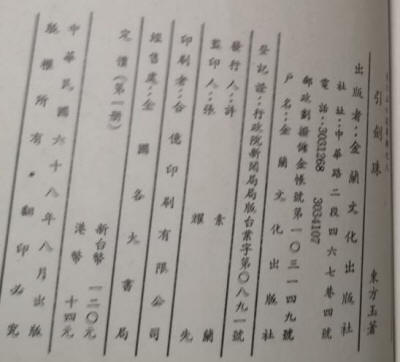 引劍珠
東方玉著
出版者：金蘭文化出版社
社址：中華路二段四六七巷四號
電話：3031268 3034107
郵政劃撥儲金帳號第一〇三一四九號
戶名：金蘭文化出版社
登記證：行政院新聞局局版台業字第〇八九一號
發行人：許素蘭
監印人：張耀先
印刷者：合億印刷有限公司
經售處：全國各大書局
定價（第一冊）
新台幣 一二〇元
港幣 十四元
中華民國六十八年八月出版
版權所有・翻印必究